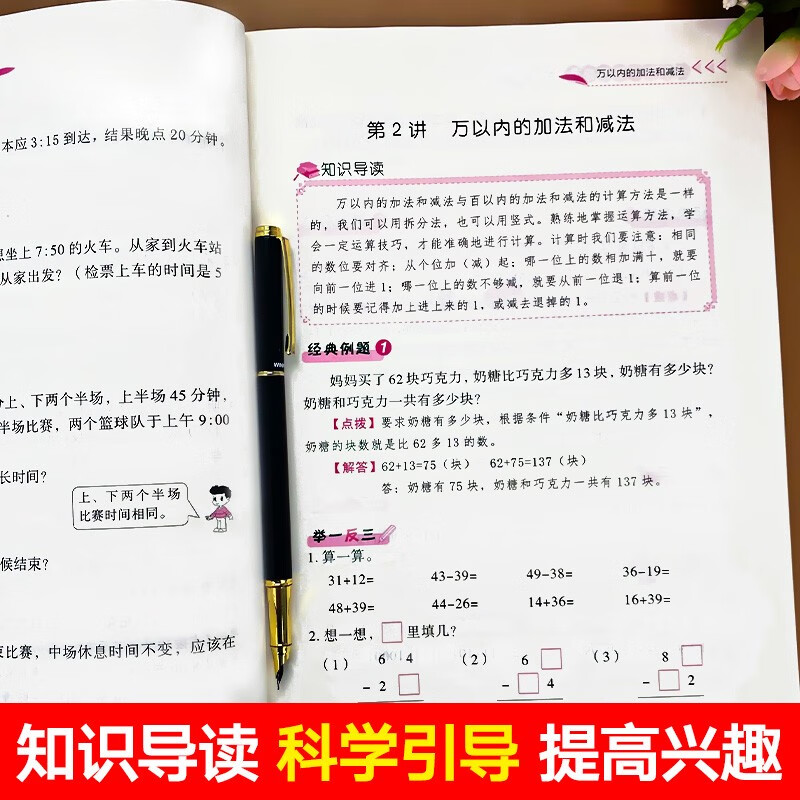 本应3:15到达，结果晚点20分钟。
想坐上7:50的火车。从家到火车站
从家出发？（检票上车的时间是5
分上、下两个半场，上半场45分钟，
半场比赛，两个篮球队于上午9:00
长时间？
上、下两个半场
比赛时间相同。
候结束？
束比赛，中场休息时间不变，应该在
万以内的加法和减法
第2讲 万以内的加法和减法
知识导读
万以内的加法和减法与百以内的加法和减法的计算方法是一样
的，我们可以用拆分法，也可以用竖式。熟练地掌握运算方法，学
会一定运算技巧，才能准确地进行计算。计算时我们要注意：相同
的数位要对齐；从个位加（减）起；哪一位上的数相加满十，就要
向前一位进1；哪一位上的数不够减，就要从前一位退1；算前一位
的时候要记得加上进上来的1，或减去退掉的1。
经典例题 1
妈妈买了62块巧克力，奶糖比巧克力多13块，奶糖有多少块？
奶糖和巧克力一共有多少块？
【点拨】要求奶糖有多少块，根据条件“奶糖比巧克力多13块”，
奶糖的块数就是比62多13的数。
【解答】62+13=75（块） 62+75=137（块）
答：奶糖有75块，奶糖和巧克力一共有137块。
举一反三
1. 算一算。
31+12= 43-39= 49-38= 36-19=
48+39= 44-26= 14+36= 16+39=
2. 想一想，□里填几？
（1） 6 4 （2） 6 □ （3） 8 □
- 2 □ - □ 4 - □ 2
知识导读 科学引导 提高兴趣